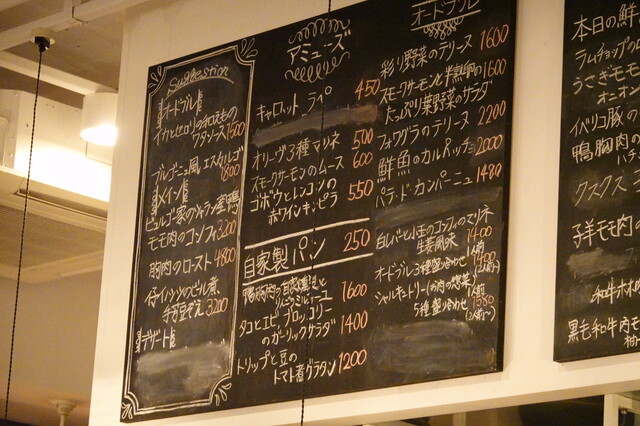 Suggestion
オードブル
イカとセロリの和えもの
ワタソース 1500
ブルゴーニュ風エスカルゴ
1800
メイン
ビュルゴ家のシャラン産鴨
モモ肉のコンフィ 3200
胸肉のロースト 4800
仔イノシシのビール煮
3200
デザート
アミューズ
キャロットラペ 450
オリーヴ3種マリネ 500
スモークサーモンのムース 600
ゴボウとレンコンの
赤ワインキンピラ 550
自家製パン 250
1600
タコとエビ、ブロッコリー
のガーリックサラダ 1400
トリップと豆の
トマト煮グラタン 1200
オードブル
彩り野菜のテリーヌ 1600
スモークサーモンと半熟卵の 1600
たっぷり葉野菜のサラダ
フォワグラのテリーヌ 2200
鮮魚のカルパッチョ 2000
パテ・ド・カンパーニュ 1480
白レバーと小玉のコンフィのマリネ
生姜風味 1400
オードブル3種盛り合わせ
シャルキュトリー(お肉の惣菜)
5種盛り合わせ 1580
本日の鮮
ラムチョップの
うさぎモモ
オニオン
イベリコ豚の
鴨胸肉の
ハチ
クスクス
仔羊モモ肉の
和牛ホホ
黒毛和牛モ